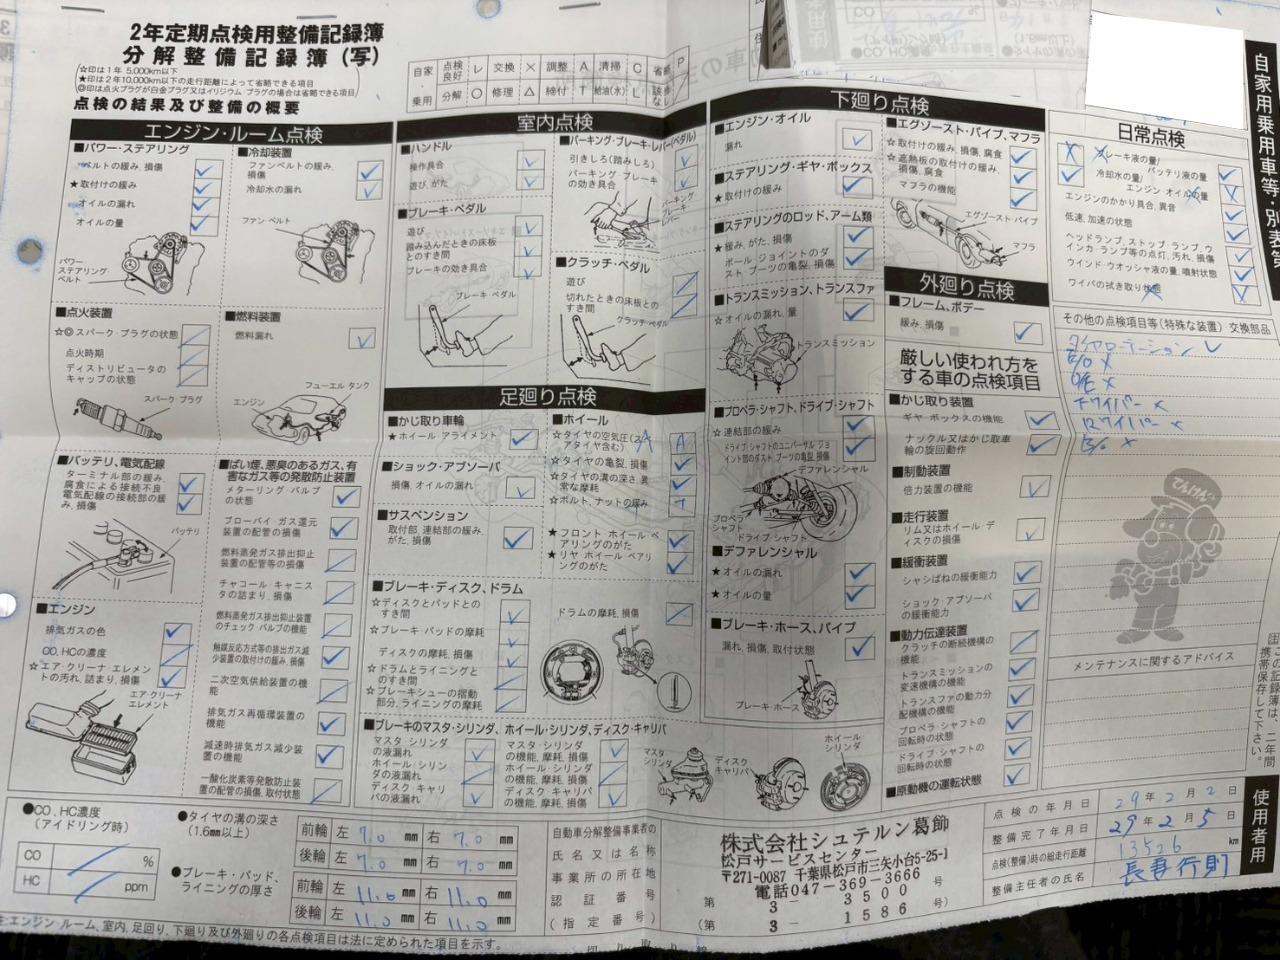 2年定期点検用整備記録簿
分解整備記録簿(写)
☆印は1年 5,000km以下
★印は2年10,000km以下の走行距離によって省略できる項目
◎印は点火プラグが白金プラグ又はイリジウム プラグの場合は省略できる項目
点検の結果及び整備の概要
自家・乗用
点検良好 レ 交換 × 調整 A 清掃 C 省略 P
分解 ○ 修理 △ 締付 T 給油(水) L 該当なし
エンジン・ルーム点検
■パワー・ステアリング
ベルトの緩み、損傷
★取付けの緩み
オイルの漏れ
オイルの量
パワーステアリングベルト
■冷却装置
ファンベルトの緩み、損傷
冷却水の漏れ
ファン ベルト
■点火装置
☆◎スパーク・プラグの状態
点火時期
ディストリビュータのキャップの状態
スパーク プラグ
■燃料装置
燃料漏れ
フューエル タンク
エンジン
■バッテリ、電気配線
ターミナル部の緩み、腐食による接続不良
電気配線の接続部の緩み、損傷
バッテリ
■エンジン
排気ガスの色
CO、HCの濃度
☆エア・クリーナ エレメントの汚れ、詰まり、損傷
エア・クリーナ エレメント
■ばい煙、悪臭のあるガス、有害なガス等の発散防止装置
メターリング バルブの状態
ブローバイ ガス還元装置の配管の損傷
燃料蒸発ガス排出抑止装置の配管等の損傷
チャコール・キャニスタの詰まり、損傷
燃料蒸発ガス排出抑止装置のチェック バルブの機能
触媒反応方式等の排出ガス減少装置の取付けの緩み、損傷
二次空気供給装置の機能
排気ガス再循環装置の機能
減速時排気ガス減少装置の機能
一酸化炭素等発散防止装置の配管の損傷、取付状態
室内点検
■ハンドル
操作具合
遊び、がた
■ブレーキ・ペダル
遊び
踏み込んだときの床板とのすき間
ブレーキの効き具合
ブレーキ ペダル
■パーキング・ブレーキ・レバー(ペダル)
引きしろ(踏みしろ)
パーキング ブレーキの効き具合
パーキング ブレーキ レバー
■クラッチ・ペダル
遊び
切れたときの床板とのすき間
クラッチ・ペダル
足廻り点検
■かじ取り車輪
★ホイール アライメント
■ショック・アブソーバ
損傷、オイルの漏れ
■サスペンション
取付部、連結部の緩み、がた、損傷
■ホイール
☆タイヤの空気圧(スペアタイヤ含む) A
☆タイヤの亀裂、損傷
☆タイヤの溝の深さ、異常な摩耗
☆ボルト、ナットの緩み T
★フロント ホイール ベアリングのがた
★リヤ ホイール ベアリングのがた
■ブレーキ・ディスク、ドラム
☆ディスクとパッドとのすき間
☆ブレーキ・パッドの摩耗
ディスクの摩耗、損傷
☆ドラムとライニングとのすき間
☆ブレーキシューの摺動部分、ライニングの摩耗
ドラムの摩耗、損傷
■ブレーキのマスタ・シリンダ、ホイール・シリンダ、ディスク・キャリパ
マスタ シリンダの液漏れ
ホイール・シリンダの液漏れ
ディスク キャリパの液漏れ
マスタ・シリンダの機能、摩耗、損傷
ホイール・シリンダの機能、摩耗、損傷
ディスク・キャリパの機能、摩耗、損傷
マスタ シリンダ
ディスク キャリパ
ホイール シリンダ
下廻り点検
■エンジン・オイル
漏れ
■ステアリング・ギヤ・ボックス
★取付けの緩み
■ステアリングのロッド、アーム類
★緩み、がた、損傷
ボール ジョイントのダスト ブーツの亀裂、損傷
■トランスミッション、トランスファ
☆オイルの漏れ、量
トランスミッション
■プロペラ・シャフト、ドライブ・シャフト
☆連結部の緩み
ドライブ・シャフトのユニバーサル ジョイント部のダスト ブーツの亀裂、損傷
デファレンシャル
プロペラ シャフト
ドライブ・シャフト
■デファレンシャル
★オイルの漏れ
★オイルの量
■ブレーキ・ホース、パイプ
漏れ、損傷、取付状態
ブレーキ・ホース
■エグゾースト・パイプ、マフラ
☆取付けの緩み、損傷、腐食
☆遮熱板の取付けの緩み、損傷、腐食
マフラの機能
エグゾースト パイプ
マフラ
外廻り点検
■フレーム、ボデー
緩み、損傷
厳しい使われ方をする車の点検項目
■かじ取り装置
ギヤ・ボックスの機能
ナックル又はかじ取車輪の旋回動作
■制動装置
倍力装置の機能
■走行装置
リム又はホイール・ディスクの損傷
■緩衝装置
シャシばねの緩衝能力
ショック・アブソーバの緩衝能力
■動力伝達装置
クラッチの断続機構の機能
トランスミッションの変速機構の機能
トランスファの動力分配機構の機能
プロペラ・シャフトの回転時の状態
ドライブ・シャフトの回転時の状態
■原動機の運転状態
日常点検
ブレーキ液の量/
バッテリ液の量
冷却水の量/
エンジン オイルの量
エンジンのかかり具合、異音
低速、加速の状態
ヘッドランプ、ストップ・ランプ、ウインカ・ランプ等の点灯、汚れ、損傷
ウインド・ウオッシャ液の量、噴射状態
ワイパの拭き取り状態
その他の点検項目等(特殊な装置)交換部品
タイヤローテーション レ
E/O ×
O/E ×
Fワイパー ×
Rワイパー ×
B/O ×
てんけんくん
メンテナンスに関するアドバイス
自家用乗用車等・別表第
使用者用
(注)この記録簿は、二年間携帯保存して下さい。
●CO、HC濃度
(アイドリング時)
CO %
HC ppm
●タイヤの溝の深さ
(1.6mm以上)
前輪 左 7.0 mm 右 7.0 mm
後輪 左 7.0 mm 右 7.0 mm
●ブレーキ・パッド、ライニングの厚さ
前輪 左 11.0 mm 右 11.0 mm
後輪 左 11.0 mm 右 11.0 mm
自動車分解整備事業者の
氏名又は名称
事業所の所在地
認証番号
(指定番号)
株式会社シュテルン葛飾
松戸サービスセンター
〒271-0087 千葉県松戸市三矢小台5-25-1
電話047-369-3666
第 3 - 3500 号
(第 3 - 1586 号)
点検の年月日 29年2月2日
整備完了年月日 29年2月5日
点検(整備)時の総走行距離 13526 km
整備主任者の氏名 長吾行則
注:エンジン・ルーム、室内、足回り、下廻り及び外廻りの各点検項目は法に定められた項目を示す。
切り取り線